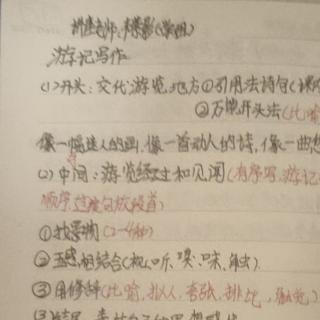 讲座老师:
游记写作
(1)开头:交代游览地方①引用法诗句(课
②万能开头法(比喻
像一幅迷人的画,像一首动人的诗,像一曲悠
(2)中间:游览经过和见闻(有序写,游记
顺序,过渡句放段首)
①找景物(2-4种)
②五感相结合(视、听、嗅、味、触)
③用修辞(比喻,拟人,夸张,排比,
(3)结尾: